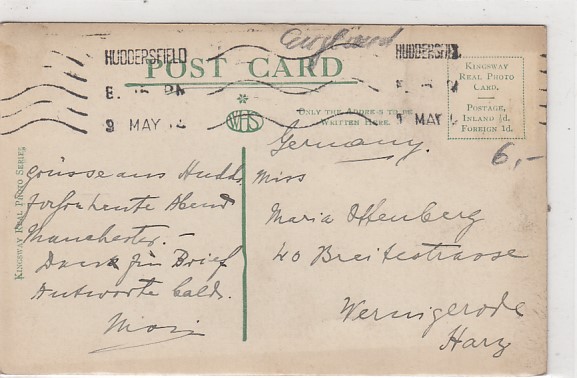 England
HUDDERSFIELD
HUDDERSFI
POST CARD
8. 15 PM
9 MAY
9 MAY
KINGSWAY
REAL PHOTO
CARD.
POSTAGE,
INLAND ½d.
FOREIGN 1d.
WHS
ONLY THE ADDRESS TO BE
WRITTEN HERE.
KINGSWAY REAL PHOTO SERIES
6,-
Grüsse aus Hudds.
heute Abend
Manchester. –
Dank für Brief
Antworte bald.
Germany.
Miss
Maria Offenberg
40 Breitestrasse
Wernigerode
Harz